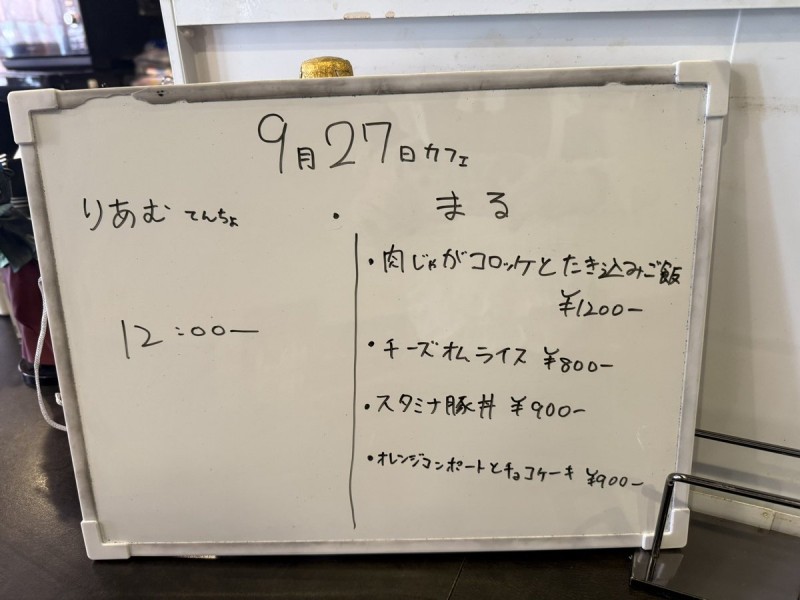 9月27日カフェ
りあむ てんちょ ・ まる
12:00ー
・肉じゃがコロッケとたき込みご飯
¥1200ー
・チーズオムライス ¥800ー
・スタミナ豚丼 ¥900ー
・オレンジコンポートとチョコケーキ ¥900ー